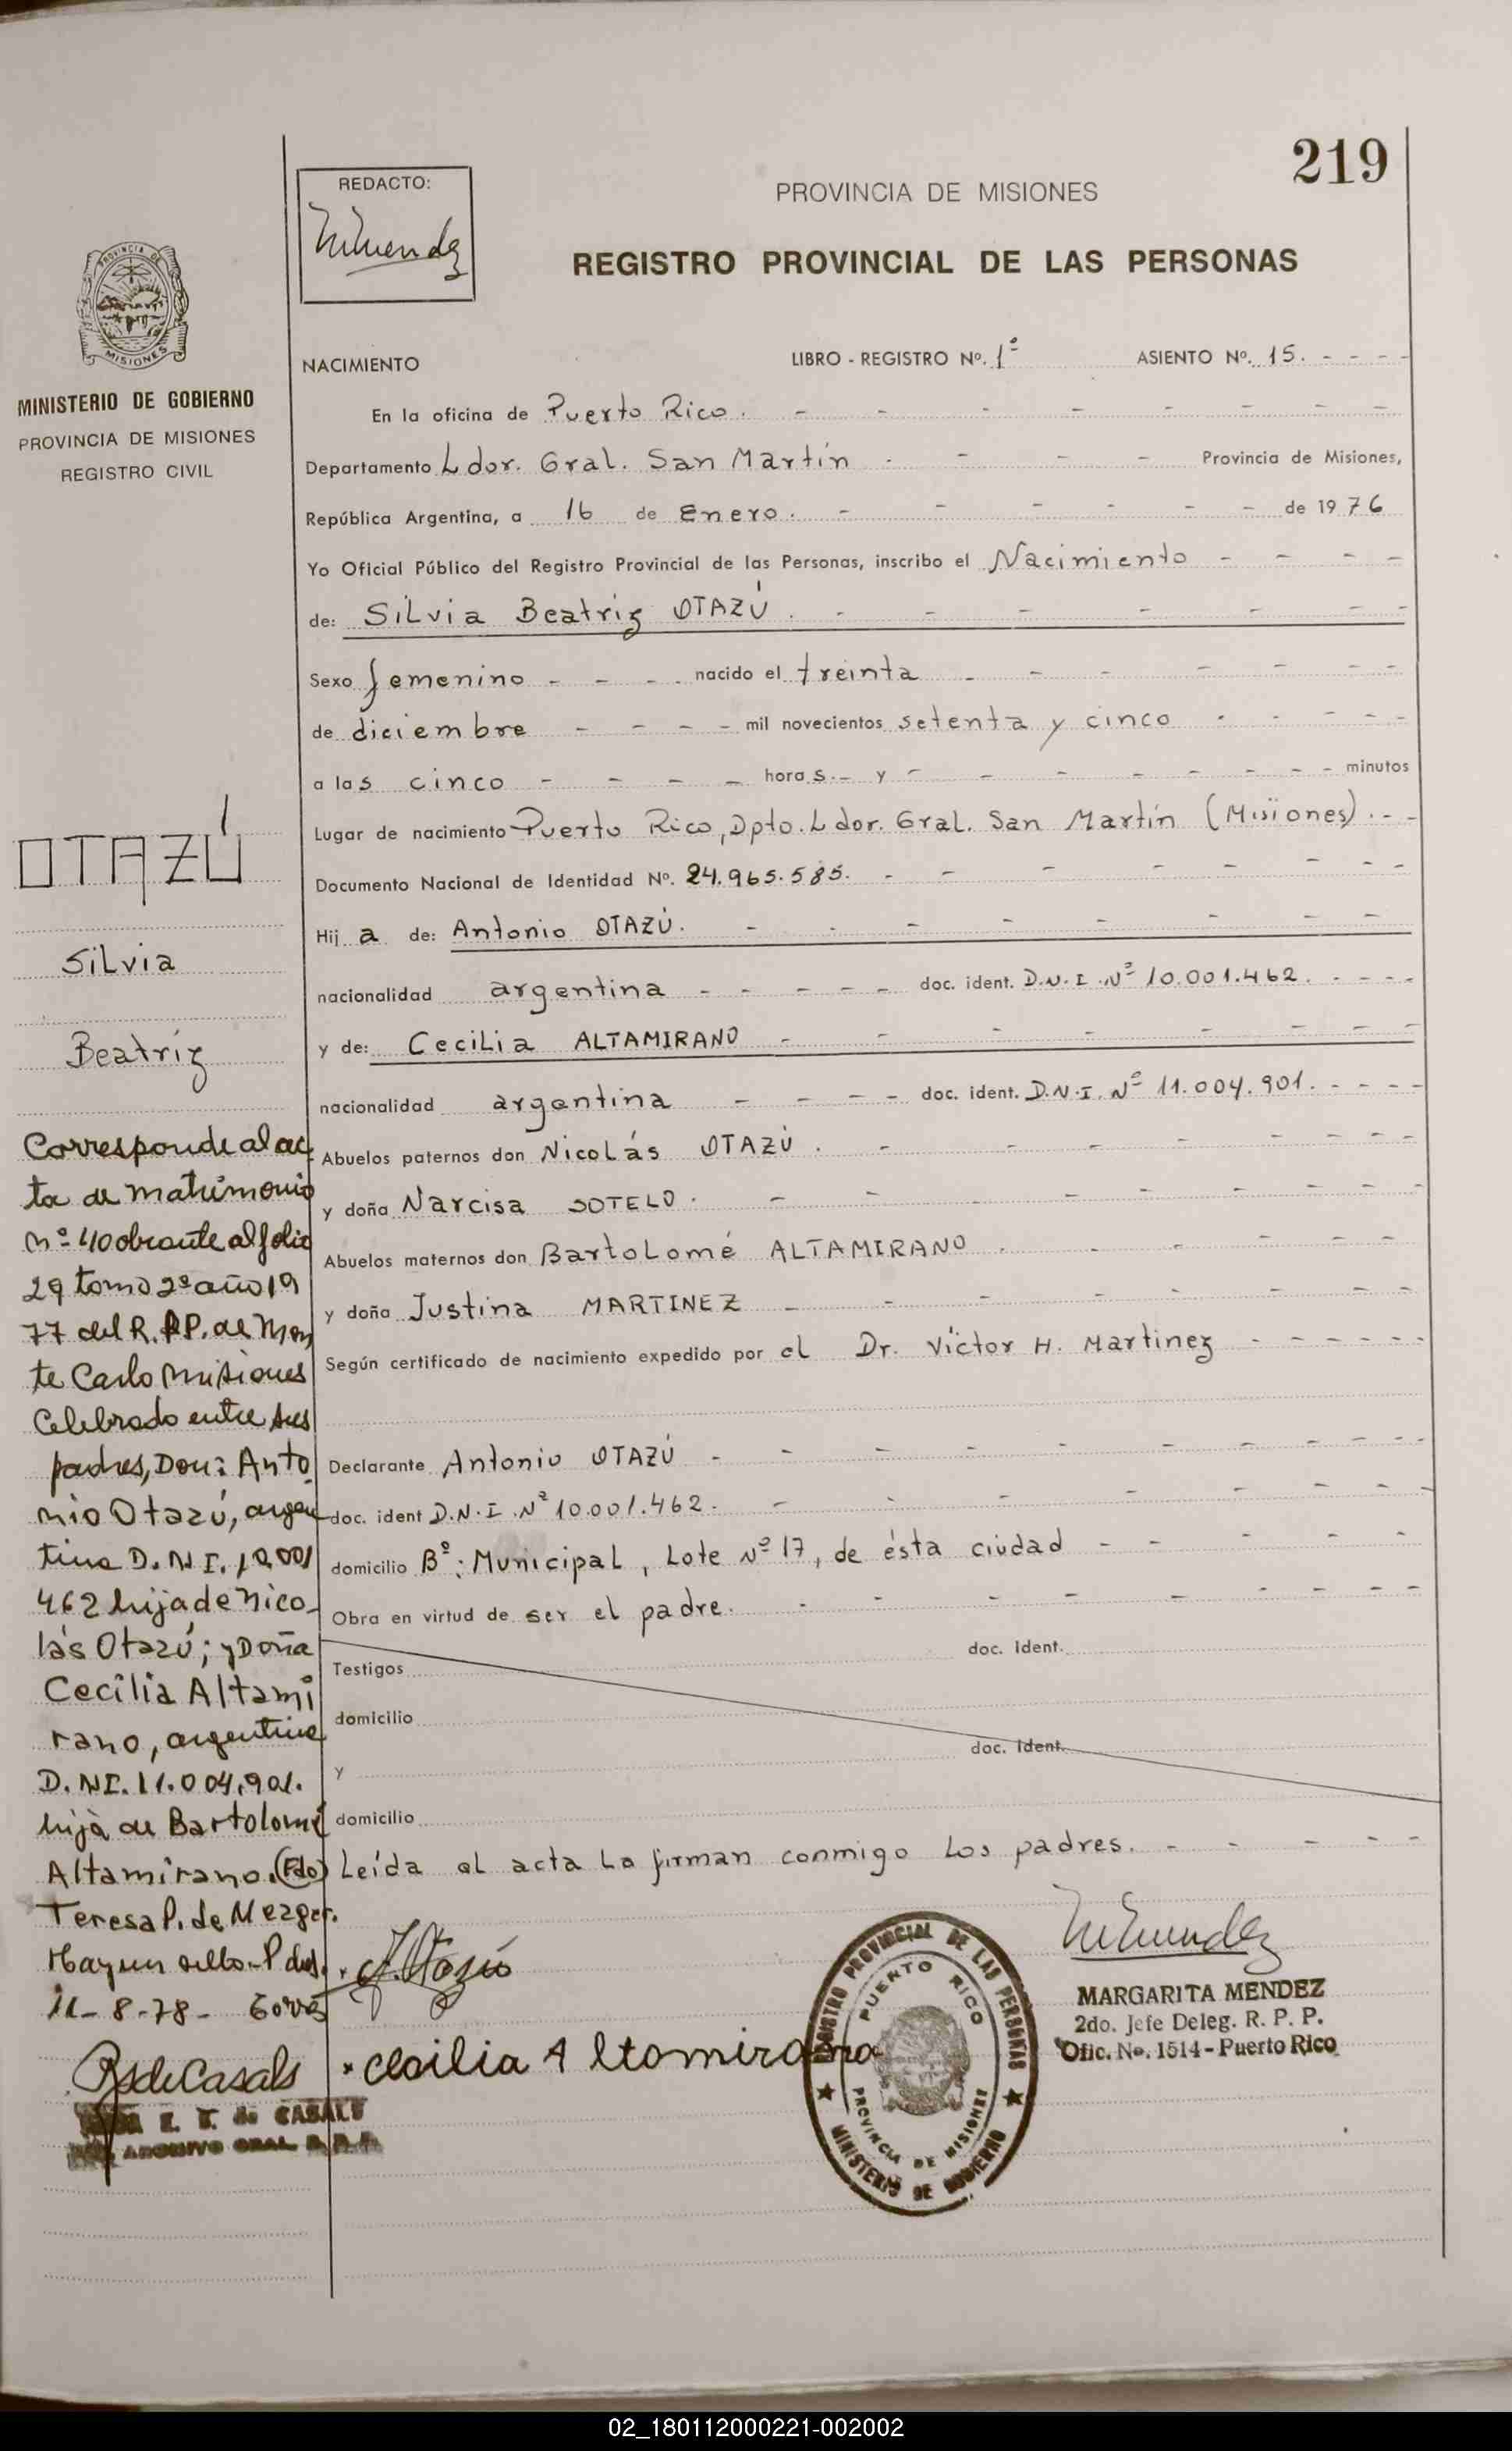 219
REDACTO:
PROVINCIA DE MISIONES
REGISTRO PROVINCIAL DE LAS PERSONAS
PROVINCIA DE
MISIONES
MINISTERIO DE GOBIERNO
PROVINCIA DE MISIONES
REGISTRO CIVIL
NACIMIENTO LIBRO - REGISTRO Nº. 1º ASIENTO Nº. 15. - - - -
En la oficina de Puerto Rico. - - - - - - - -
Departamento Ldor. Gral. San Martín - - - - Provincia de Misiones,
República Argentina, a 16 de Enero. - - - - - - de 1976
Yo Oficial Público del Registro Provincial de las Personas, inscribo el Nacimiento - - - -
de: Silvia Beatriz OTAZÚ. - - - - - - -
Sexo femenino - - - nacido el treinta - - - - - - -
de diciembre - - - - mil novecientos setenta y cinco - - - - -
a las cinco - - - - horas.- y - - - - - - - - minutos
Lugar de nacimiento Puerto Rico, Dpto. Ldor. Gral. San Martín (Misiones). - -
Documento Nacional de Identidad Nº. 24.965.585. - - - - - - - -
Hija de: Antonio OTAZÚ. - - - - - - - -
nacionalidad argentina - - - - - doc. ident. D.N.I. Nº 10.001.462. - - - -
y de: Cecilia ALTAMIRANO - - - - - - - -
nacionalidad argentina - - - - doc. ident. D.N.I. Nº 11.004.901. - - - -
Abuelos paternos don Nicolás OTAZÚ. - - - - - - - -
y doña Narcisa SOTELO. - - - - - - - -
Abuelos maternos don Bartolomé ALTAMIRANO. - - - - -
y doña Justina MARTINEZ - - - - - - - -
Según certificado de nacimiento expedido por el Dr. Víctor H. Martinez - - - - - -
Declarante Antonio OTAZÚ - - - - - - - - -
doc. ident D.N.I. Nº 10.001.462. - - - - - - - -
domicilio Bº: Municipal, Lote Nº 17, de ésta ciudad - - - - -
Obra en virtud de ser el padre. - - - - - - - -
Testigos doc. ident.
domicilio
y doc. ident.
domicilio
Leída el acta la firman conmigo los padres. - - - - -
OTAZÚ
Silvia
Beatriz
Corresponde al ac
ta de matrimonio
nº 40 obrante al folio
29 tomo 2º año 19
77 del R.P.P. de Mon
te Carlo Misiones
Celebrado entre sus
padres, Don: Anto
nio Otazú, argen
tino D.N.I. 10.001
462 hijo de Nico
lás Otazú; y Doña
Cecilia Altami
rano, argentina
D.NI. 11.004.901.
hija de Bartolomé
Altamirano. (Fdo)
Teresa P. de Mezger.
Hay un sello - P
11-8-78-
RsdeCasals
E. T. de CASALS
ARCHIVO GRAL. R.P.P.
A. Otazú
Cecilia Altamirano
REGISTRO PROVINCIAL DE LAS PERSONAS
PUERTO RICO
PROVINCIA DE MISIONES
MINISTERIO DE GOBIERNO
MARGARITA MENDEZ
2do. Jefe Deleg. R. P. P.
Ofic. Nº. 1514 - Puerto Rico
02_180112000221-002002